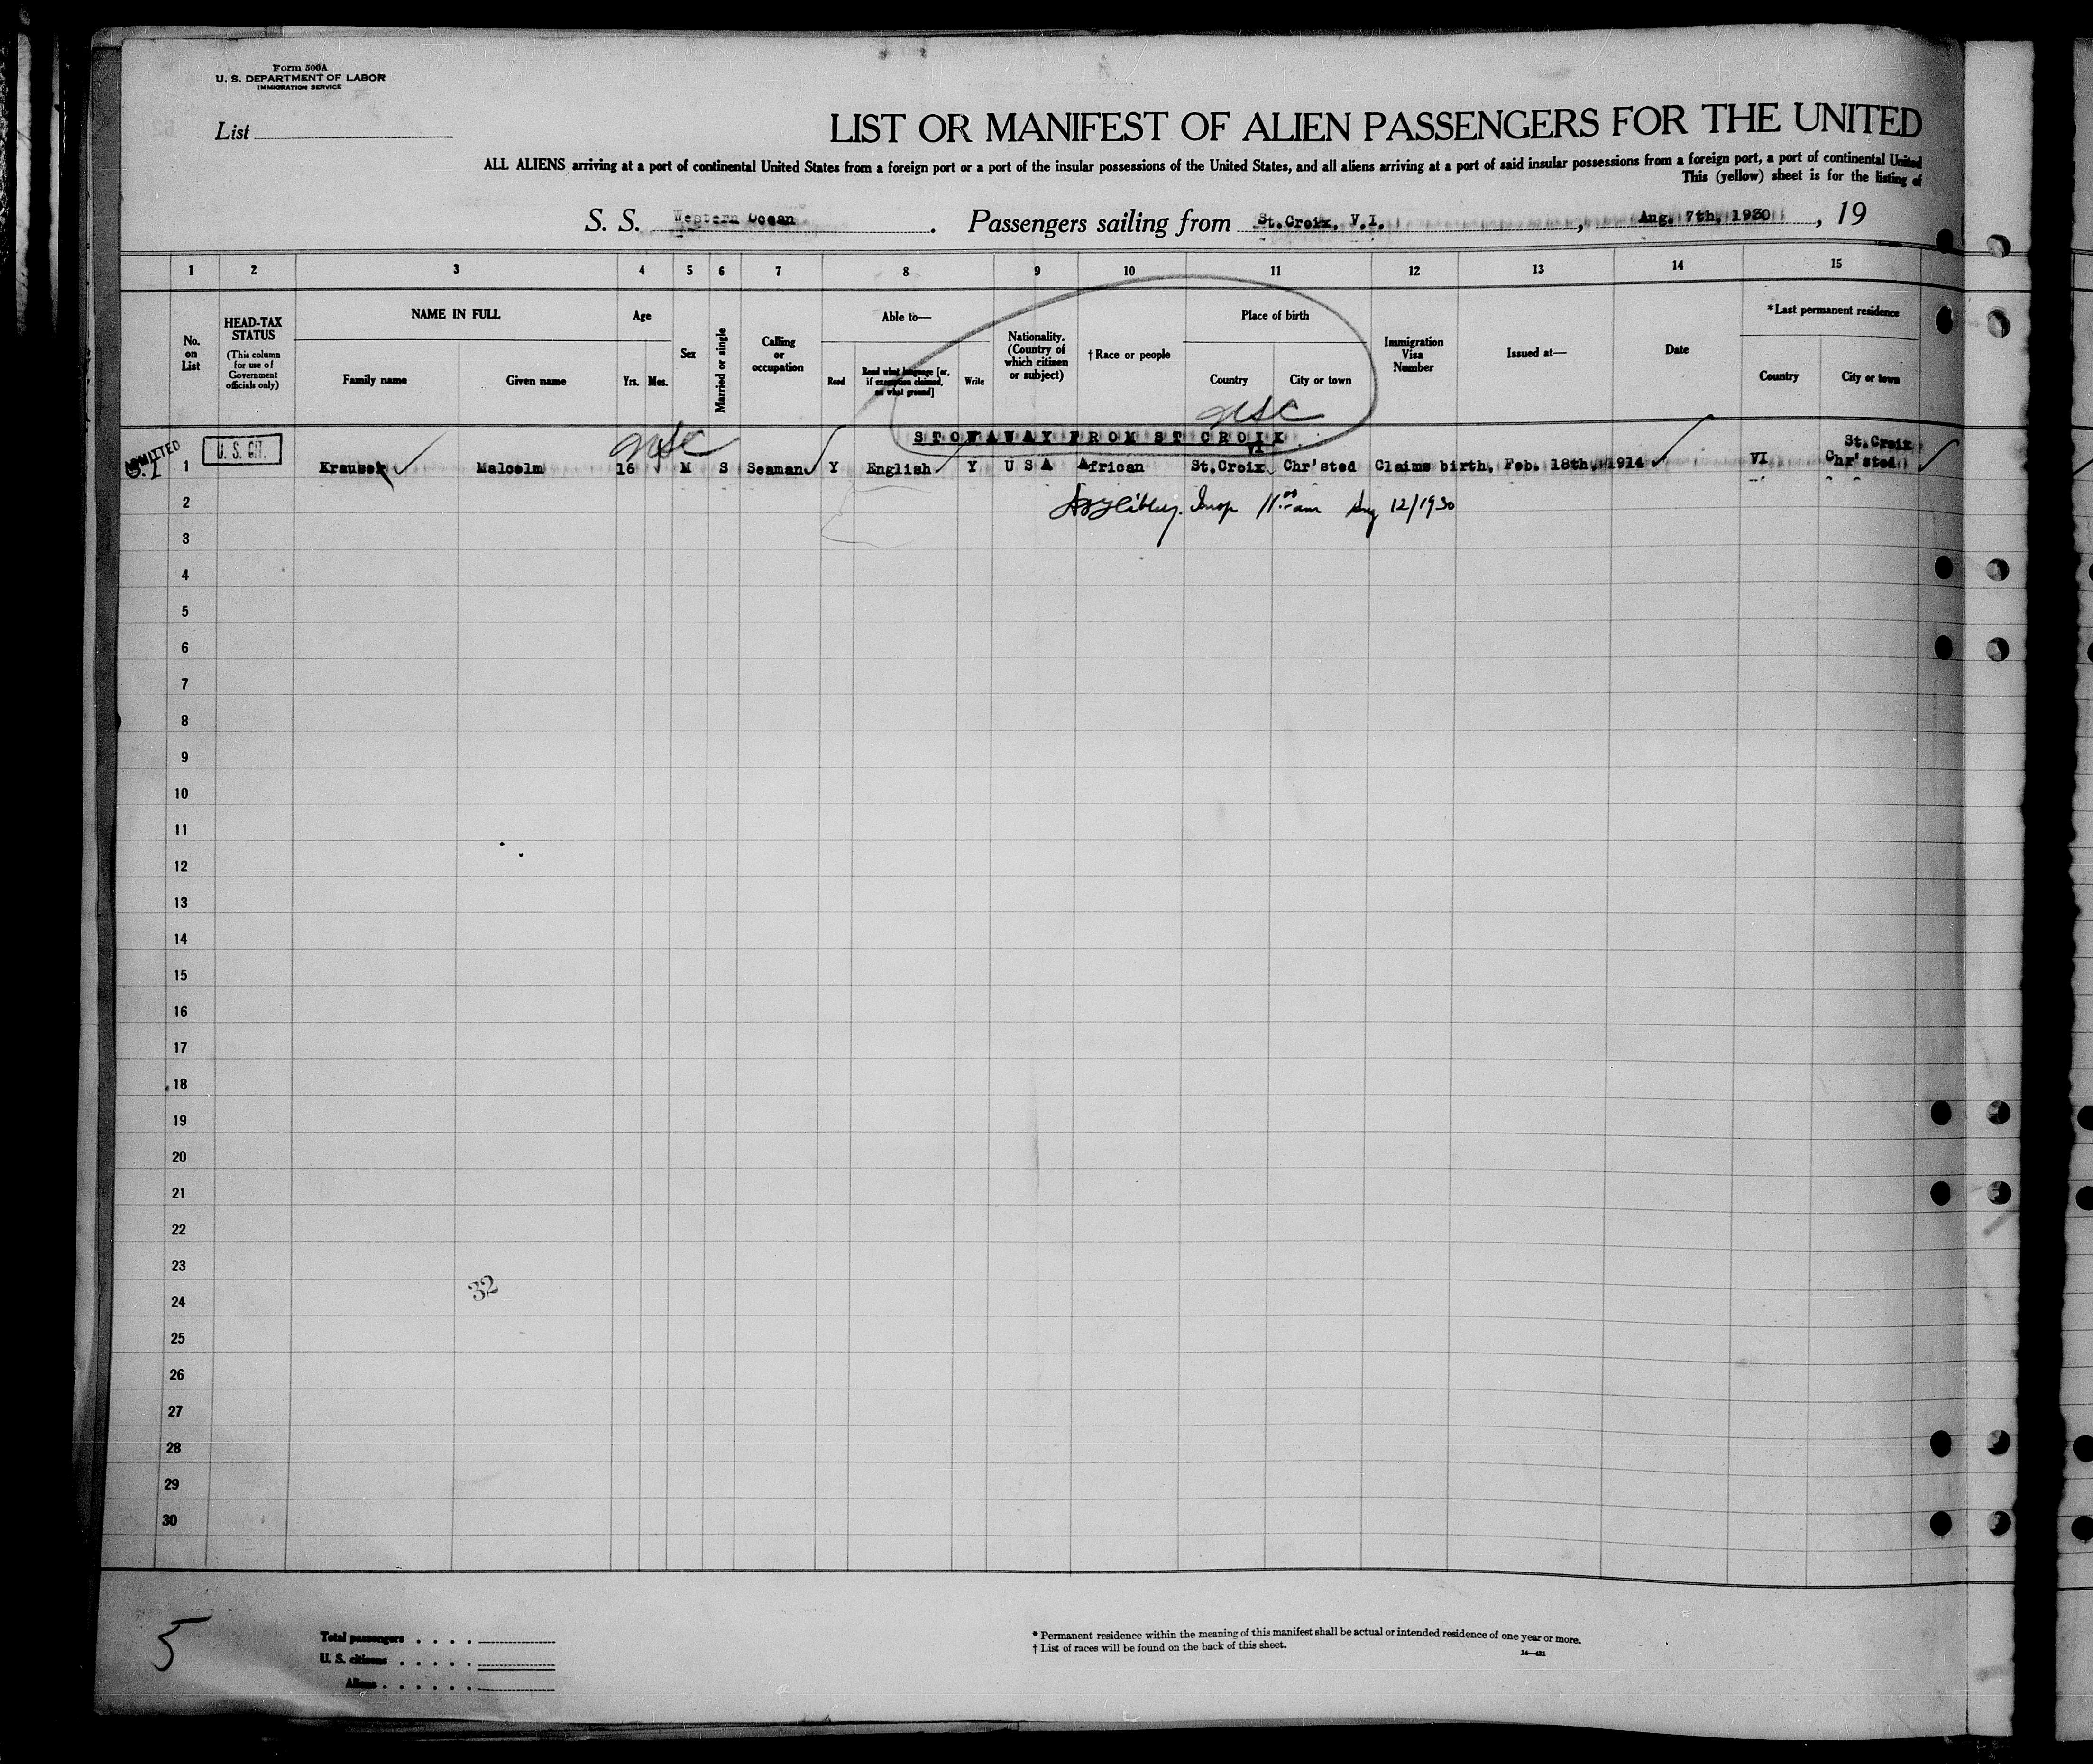 Form 500A
U. S. DEPARTMENT OF LABOR
IMMIGRATION SERVICE
List
LIST OR MANIFEST OF ALIEN PASSENGERS FOR THE UNITED
ALL ALIENS arriving at a port of continental United States from a foreign port or a port of the insular possessions of the United States, and all aliens arriving at a port of said insular possessions from a foreign port, a port of continental United
This (yellow) sheet is for the listing of
S. S. Western Ocean. Passengers sailing from St.Croix, V.I., Aug. 7th, 1930, 19
1 2 3 4 5 6 7 8 9 10 11 12 13 14 15
No. on List
HEAD-TAX STATUS
(This column for use of Government officials only)
NAME IN FULL
Family name
Given name
Age
Yrs. Mos.
Sex
Married or single
Calling or occupation
Able to—
Read
Read what language [or, if exemption claimed, on what ground]
Write
Nationality. (Country of which citizen or subject)
†Race or people
Place of birth
Country
City or town
Immigration Visa Number
Issued at—
Date
*Last permanent residence
Country
City or town
USC
USC
STOWAWAY FROM ST CROIX
ADMITTED
S.I
U. S. CIT.
VI
St.Croix
1 Krauser Malcolm 16 M S Seaman Y English Y U S A African St.Croix Chr'sted Claims birth, Feb. 18th, 1914 VI Chr'sted
2 Insp 11:00 am Aug 12/1930
3
4
5
6
7
8
9
10
11
12
13
14
15
16
17
18
19
20
21
22
23
32
24
25
26
27
28
29
30
5
Total passengers . . . .
U. S. citizens . . . . .
Aliens . . . . . .
* Permanent residence within the meaning of this manifest shall be actual or intended residence of one year or more.
† List of races will be found on the back of this sheet.